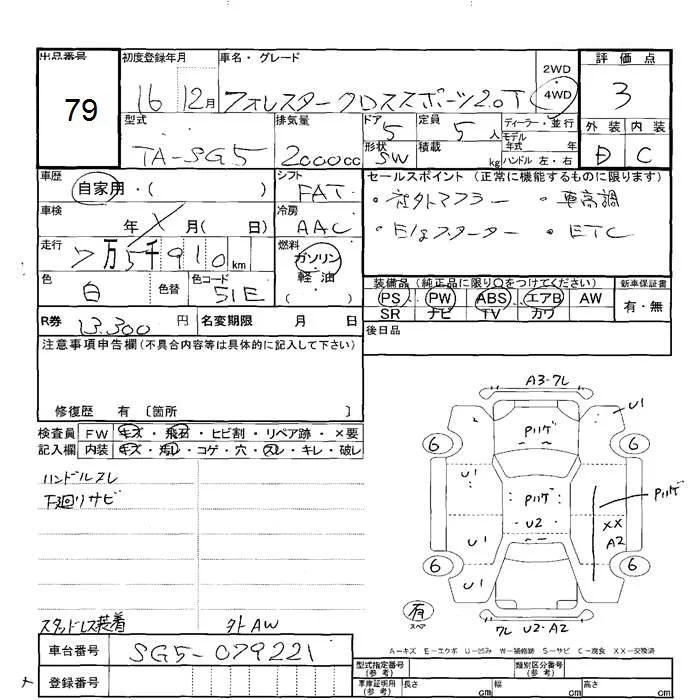 出品番号 初度登録年月 車名・グレード 2WD 4WD 評価点
79 16 12月 フォレスター クロススポーツ2.0T 3
型式 排気量 ドア 定員 ディーラー・並行 外装 内装
TA-SG5 2000cc 5 5人 モデル年式 年 D C
形状 SW 積載 kg ハンドル 左・右
車歴 自家用・( ) シフト FAT
セールスポイント (正常に機能するものに限ります)
・社外マフラー ・車高調
車検 年 月( 日) 冷房 AAC
・E/gスターター ・ETC
走行 7万5千910km 燃料 ガソリン 軽油 ( )
色 白 色替 色コード 51E
装備品 (純正品に限り○をつけてください) 新車保証書
PS PW ABS エアB AW 有・無
SR ナビ TV カワ
R券 13,300円 名変期限 月 日
後日品
注意事項申告欄(不具合内容等は具体的に記入して下さい)
修復歴 有 〔箇所 〕
検査員 FW キズ・飛石・ヒビ割・リペア跡・×要
記入欄 内装 キズ・汚レ・コゲ・穴・スレ・キレ・破レ
ハンドルスレ
下廻りサビ
スタッドレス装着 外AW
A3・7L
U1
Pリゲ
6 6
U1 Pリゲ Pリゲ
U2 XX
U1 A2
6 6
U1
有
スペア
7L U2・A2
A−キズ E−エクボ U−凹み W−補修跡 S−サビ C−腐食 XX−交換済
車台番号 SG5-079221
登録番号
型式指定番号(参考) 類別区分番号(参考)
車庫証明用(参考) 長さ cm 幅 cm 高さ cm